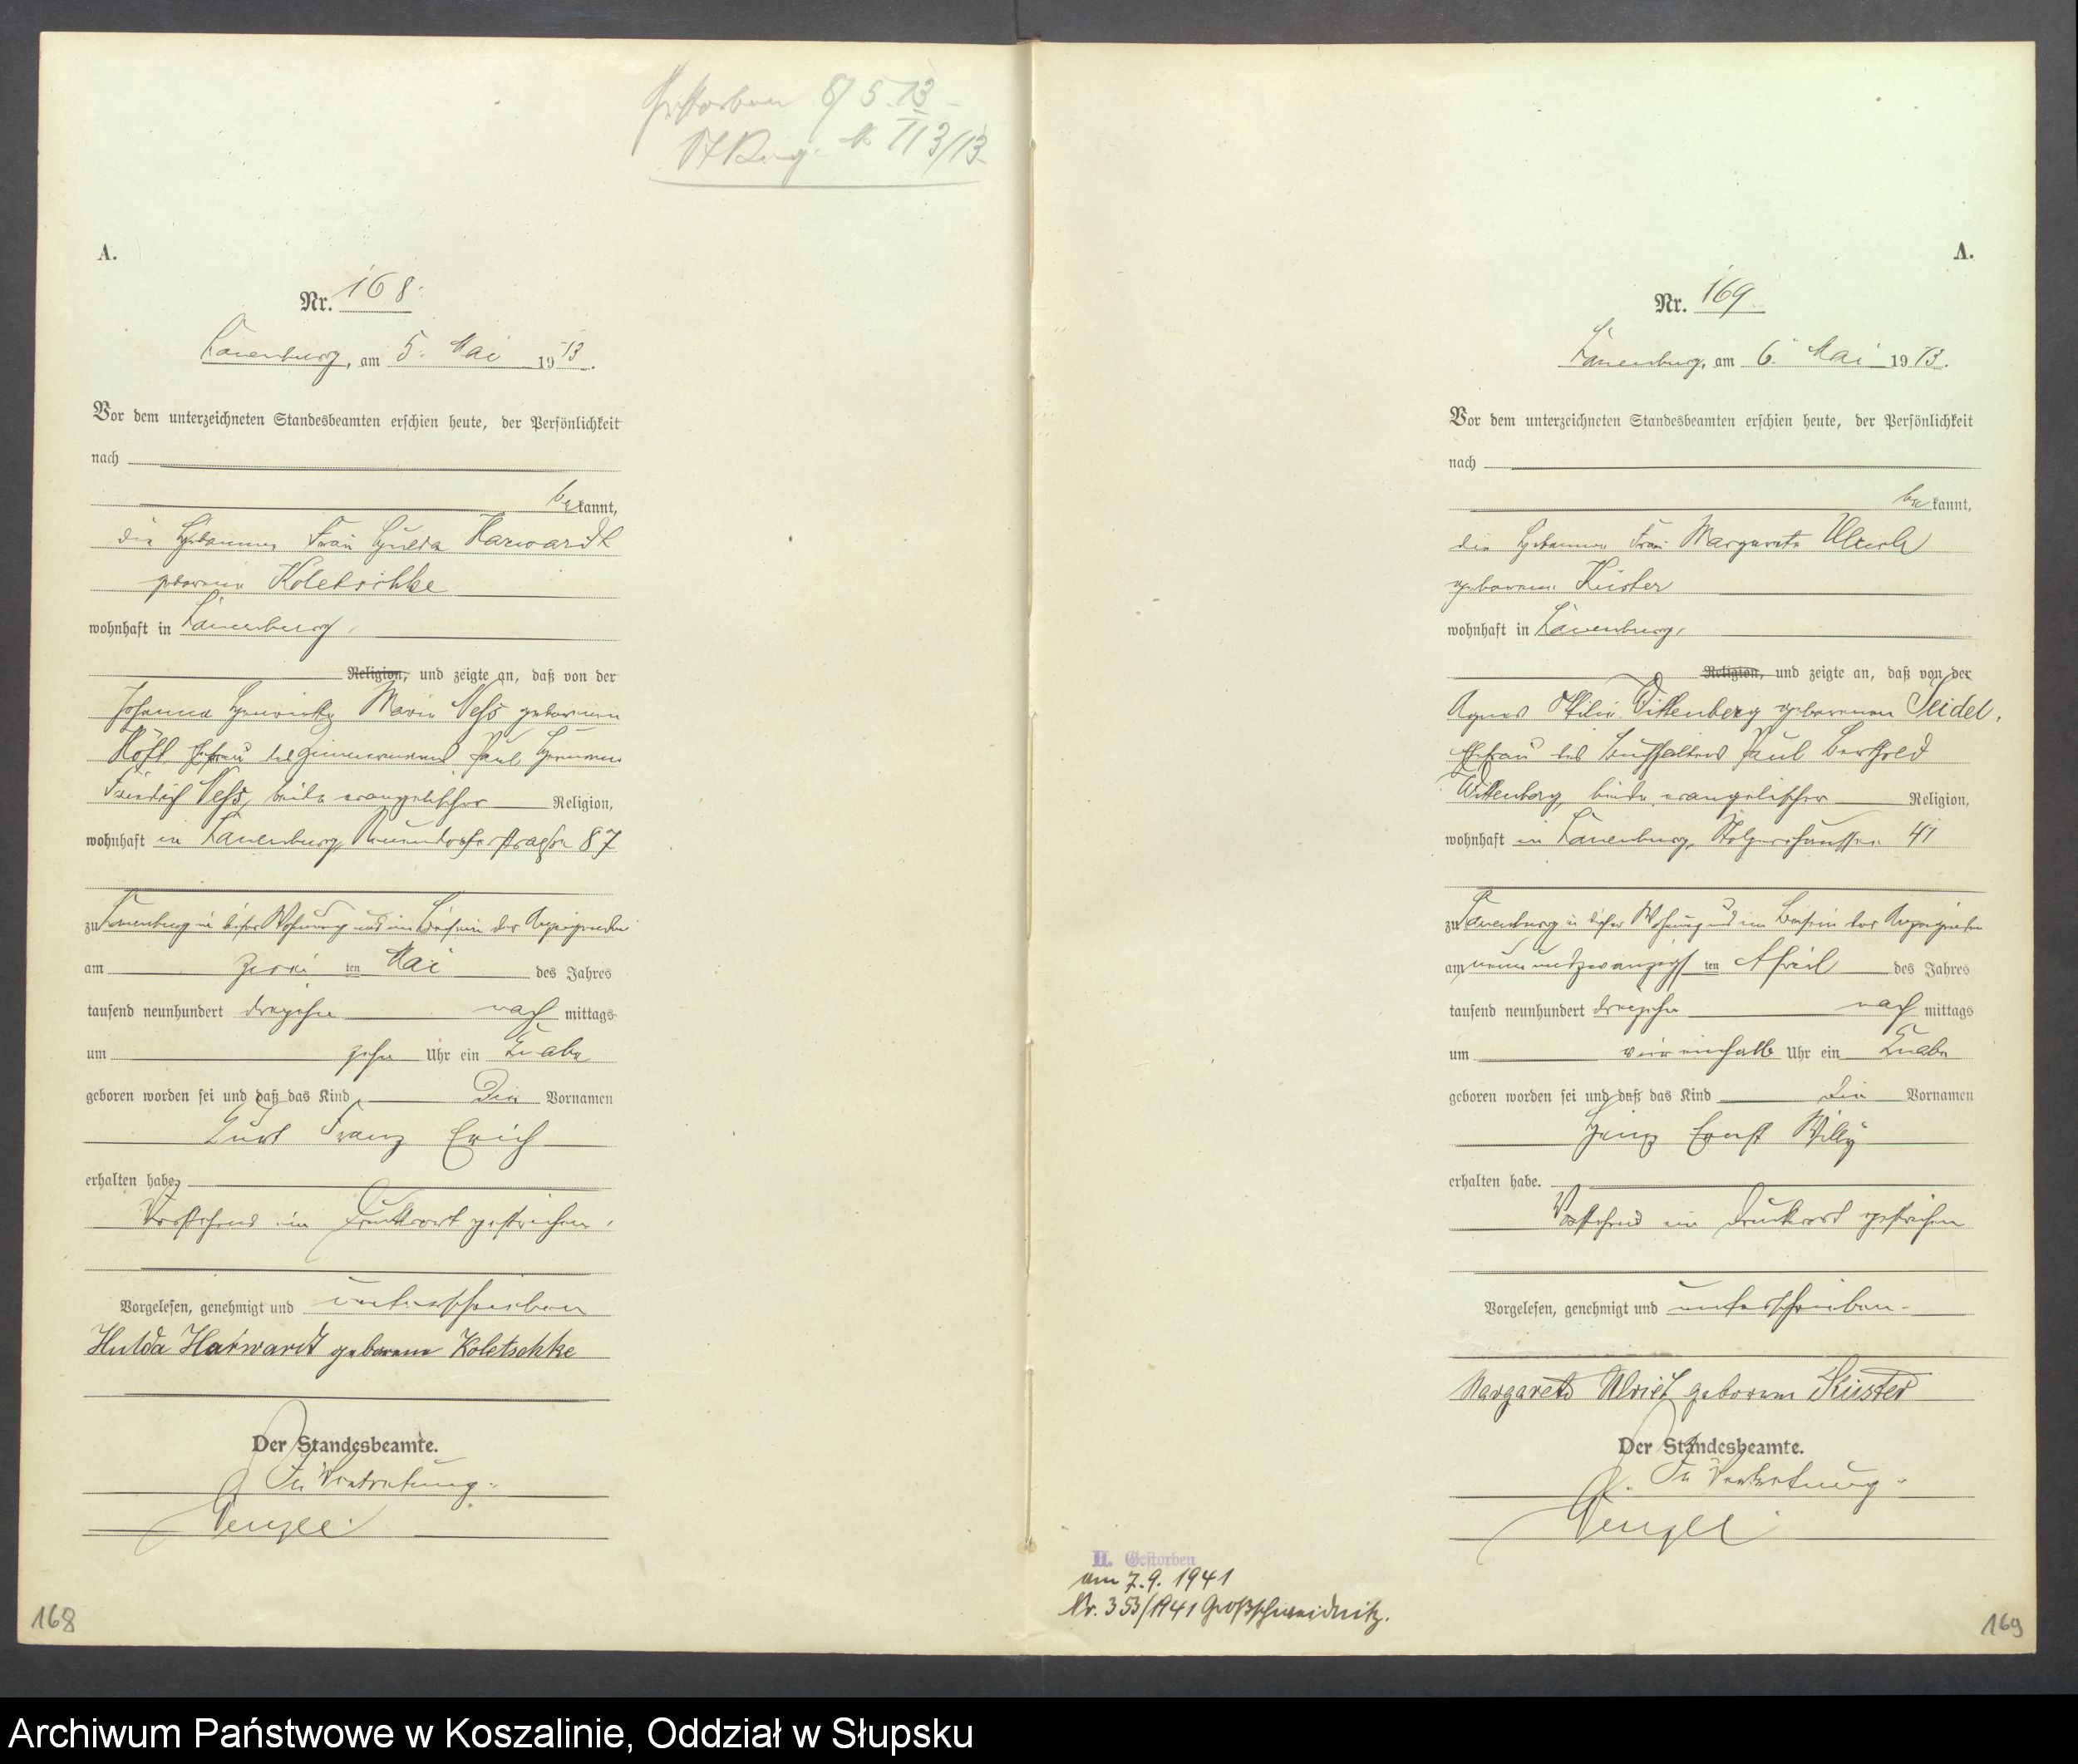 Gestorben 8/5.13
StReg. № 113/13
A.
Nr. 168.
Lauenburg, am 5. Mai 1913.
Vor dem unterzeichneten Standesbeamten erschien heute, der Persönlichkeit
nach
bekannt,
die Hebamme Frau Hulda Harwardt
geborene Koletschke
wohnhaft in Lauenburg,
Religion, und zeigte an, daß von der
Johanna Henriette Marie Veß geborenen
Höft Ehefrau des Zimmermanns Paul Hermann
Friedrich Veß, beide evangelischer Religion,
wohnhaft in Lauenburg, Neuendorferstraße 87
zu Lauenburg in dieser Wohnung und im Beisein der Anzeigenden
am zwei ten Mai des Jahres
tausend neunhundert dreizehn nach mittags
um zehn Uhr ein Knabe
geboren worden sei und daß das Kind die Vornamen
Kurt Franz Erich
erhalten habe.
Vorstehend ein Druckwort gestrichen.
Vorgelesen, genehmigt und unterschrieben
Hulda Harwardt geborene Koletschke
Der Standesbeamte.
In Vertretung.
168
A.
Nr. 169.
Lauenburg, am 6. Mai 1913.
Vor dem unterzeichneten Standesbeamten erschien heute, der Persönlichkeit
nach
bekannt,
die Hebamme Frau Margarete Ulrich
geborene Küster
wohnhaft in Lauenburg,
Religion, und zeigte an, daß von der
Agnes Ottilie Wittenberg geborenen Seidel,
Ehefrau des Buchhalters Paul Berthold
Wittenberg, beide evangelischer Religion,
wohnhaft in Lauenburg, Stolperchaussee 41
zu Lauenburg in dieser Wohnung und im Beisein der Anzeigenden
am neunundzwanzigs ten April des Jahres
tausend neunhundert dreizehn nach mittags
um viereinhalb Uhr ein Knabe
geboren worden sei und daß das Kind die Vornamen
Heinz Ernst Willy
erhalten habe.
Vorstehend ein Druckwort gestrichen
Vorgelesen, genehmigt und unterschrieben
Margarete Ulrich geborene Küster
Der Standesbeamte.
In Vertretung.
II. Gestorben
am 7.9. 1941
Nr. 353/1941 Großschweidnitz.
169
Archiwum Państwowe w Koszalinie, Oddział w Słupsku